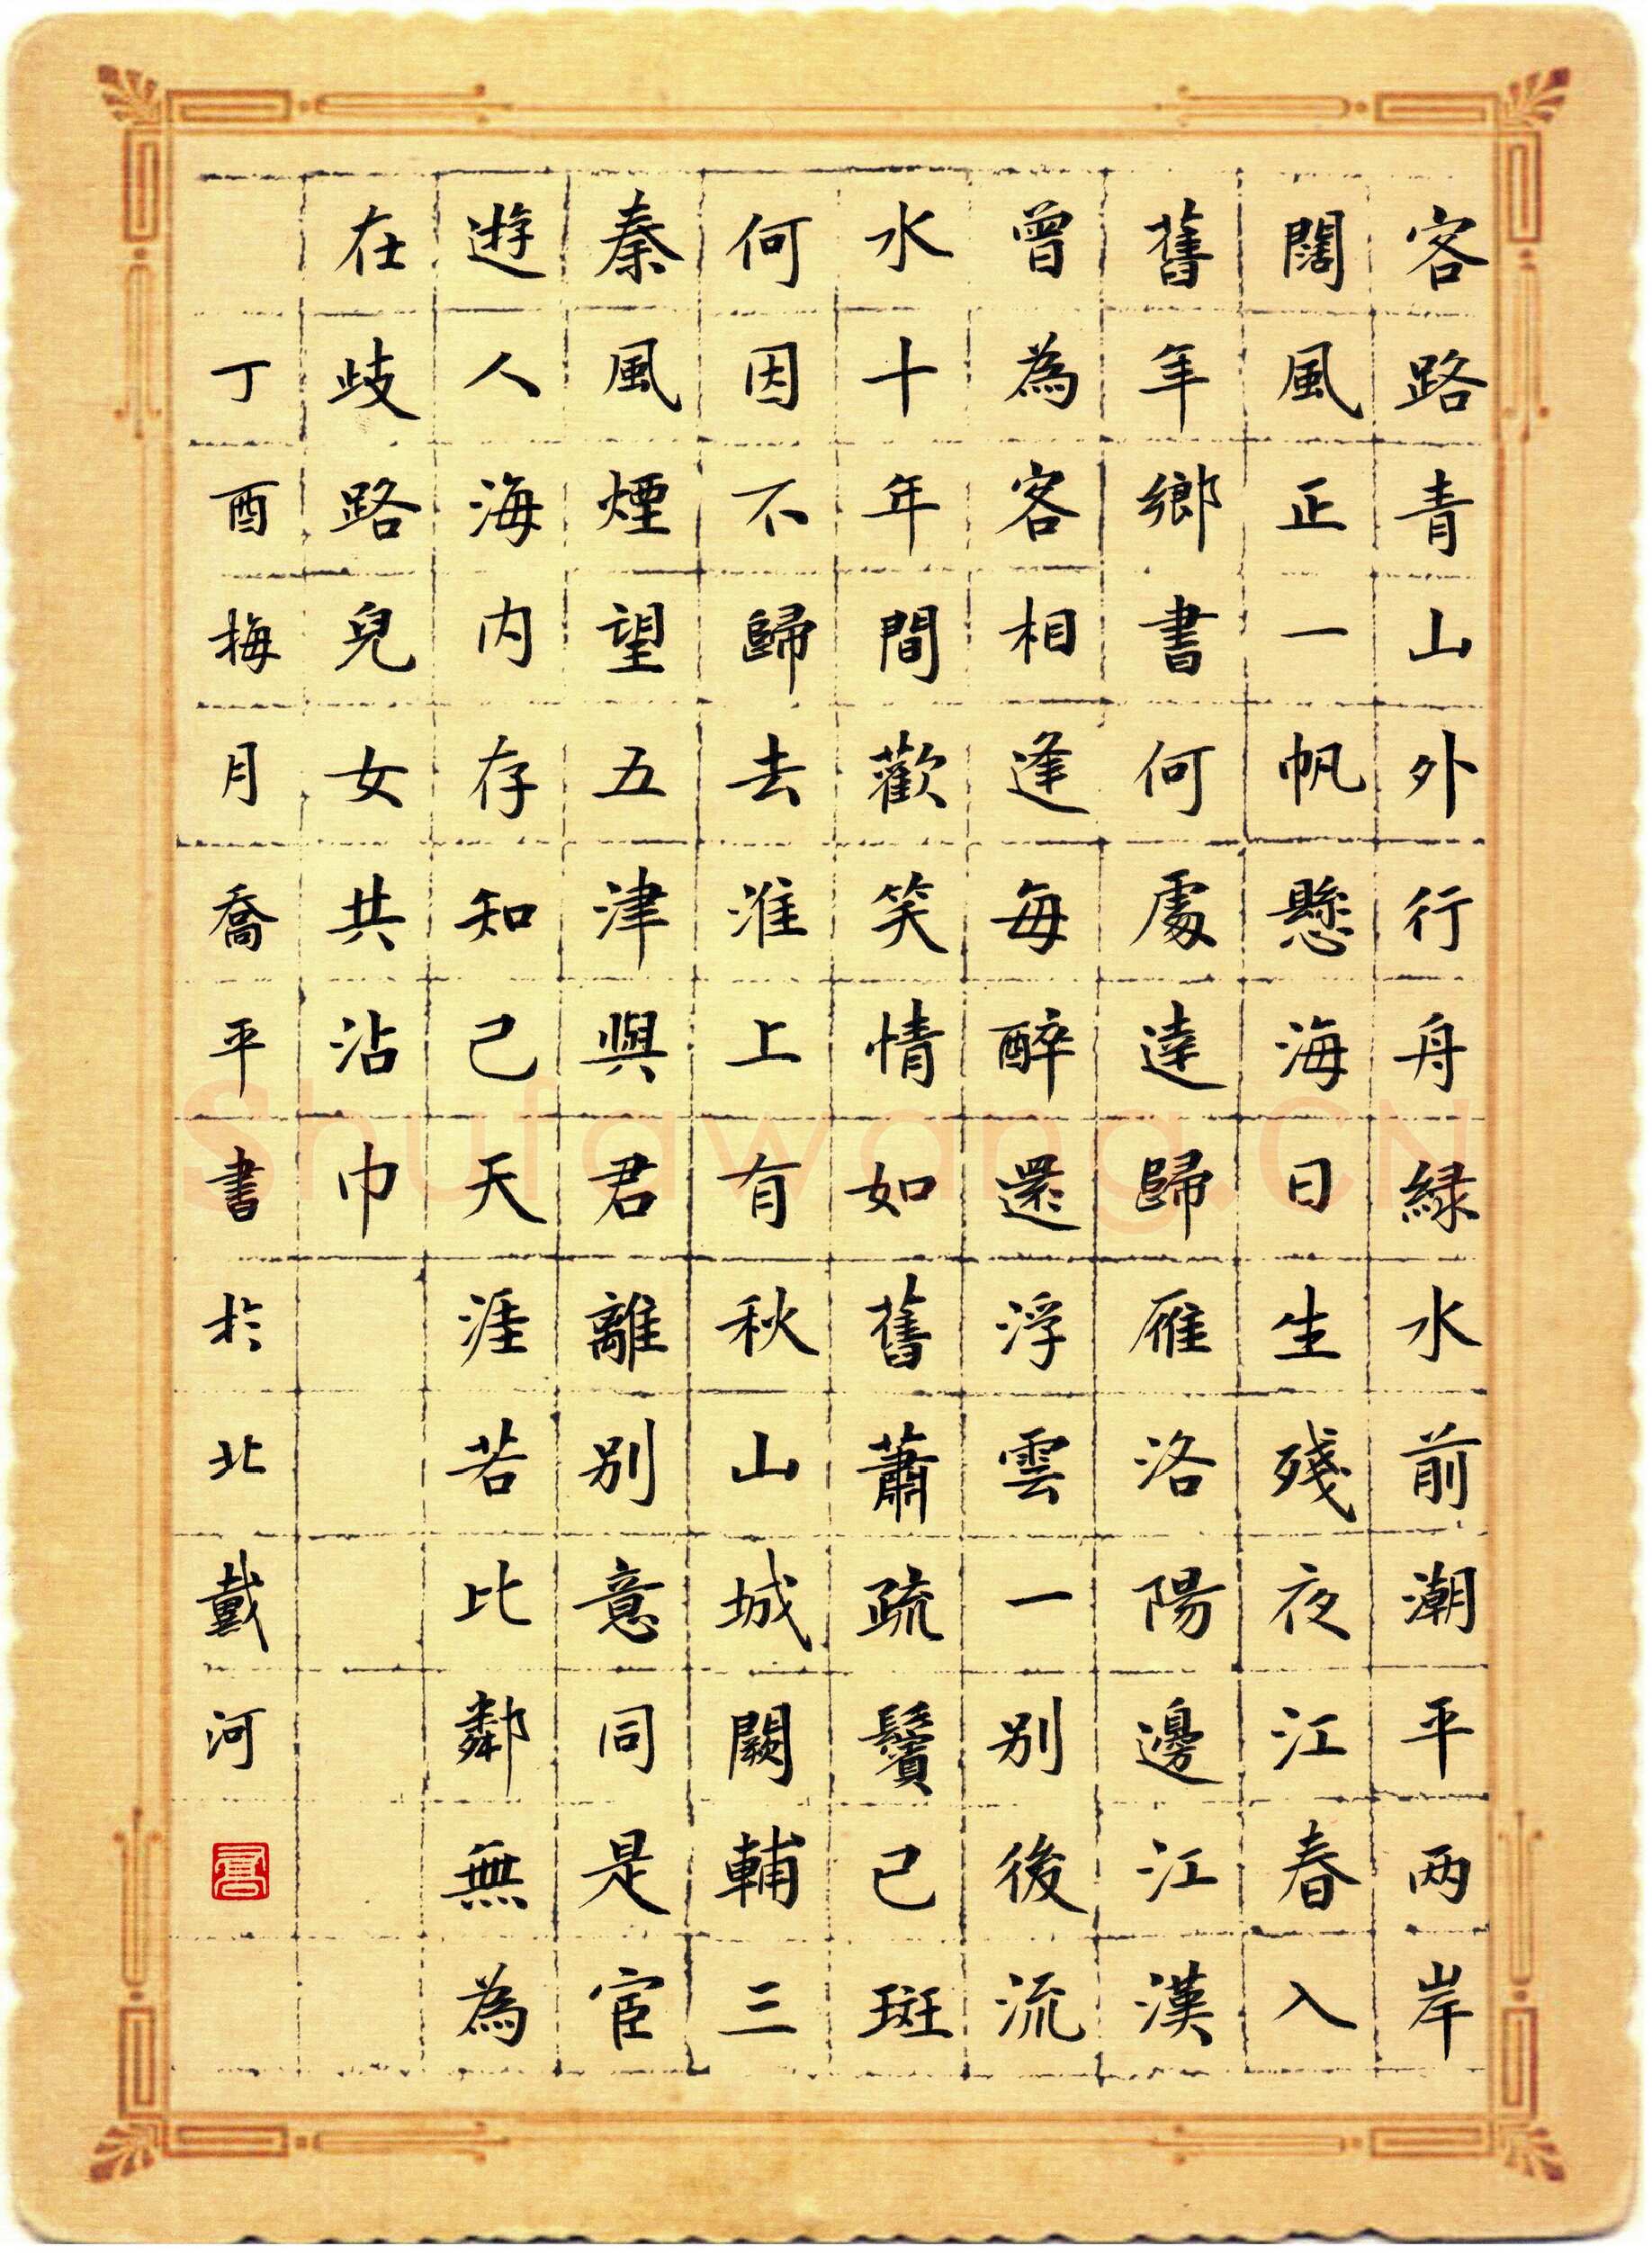 客路青山外行舟緑水前潮平两岸
闊風正一帆懸海日生殘夜江春入
舊年鄉書何處達歸雁洛陽邊江漢
曾為客相逢每醉還浮雲一別後流
水十年間歡笑情如舊蕭疏鬢已斑
何因不歸去淮上有秋山城闕輔三
秦風煙望五津與君離別意同是宦
遊人海内存知己天涯若比鄰無為
在歧路兒女共沾巾
丁酉梅月喬平書於北戴河
Shufawang.CN